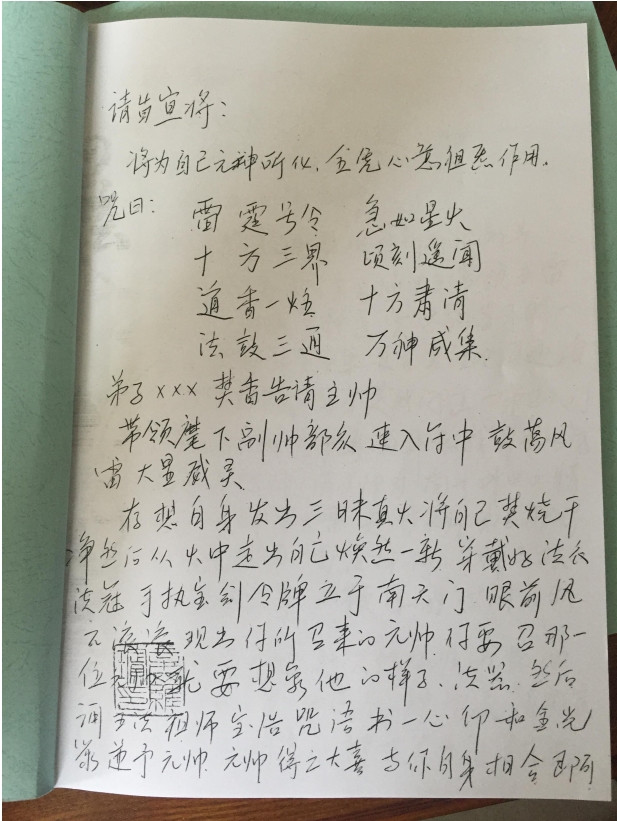 请旨宣将：
将为自己元神所化，全凭心意 作用。
咒曰：
雷霆号令 急如星火
十方三界 顷刻遥闻
道香一炷 十方肃清
法鼓三通 万神咸集
弟子xxx 焚香告请主帅
带领麾下副帅部众 速入符中 鼓荡风
雷大显威灵
存想自身发出三昧真火将自己焚烧干
净然后从火中走出自己焕然一新 穿戴好法衣
法冠 手执宝剑令牌立于南天门 眼前风
云滚滚 现出你所召来的元帅 你要召那一
位 就要想象他的样子、法器 然后
诵 法祖师宝诰咒语书一心 和金光
递予元帅 元帅得之大喜 与你自身相合 即